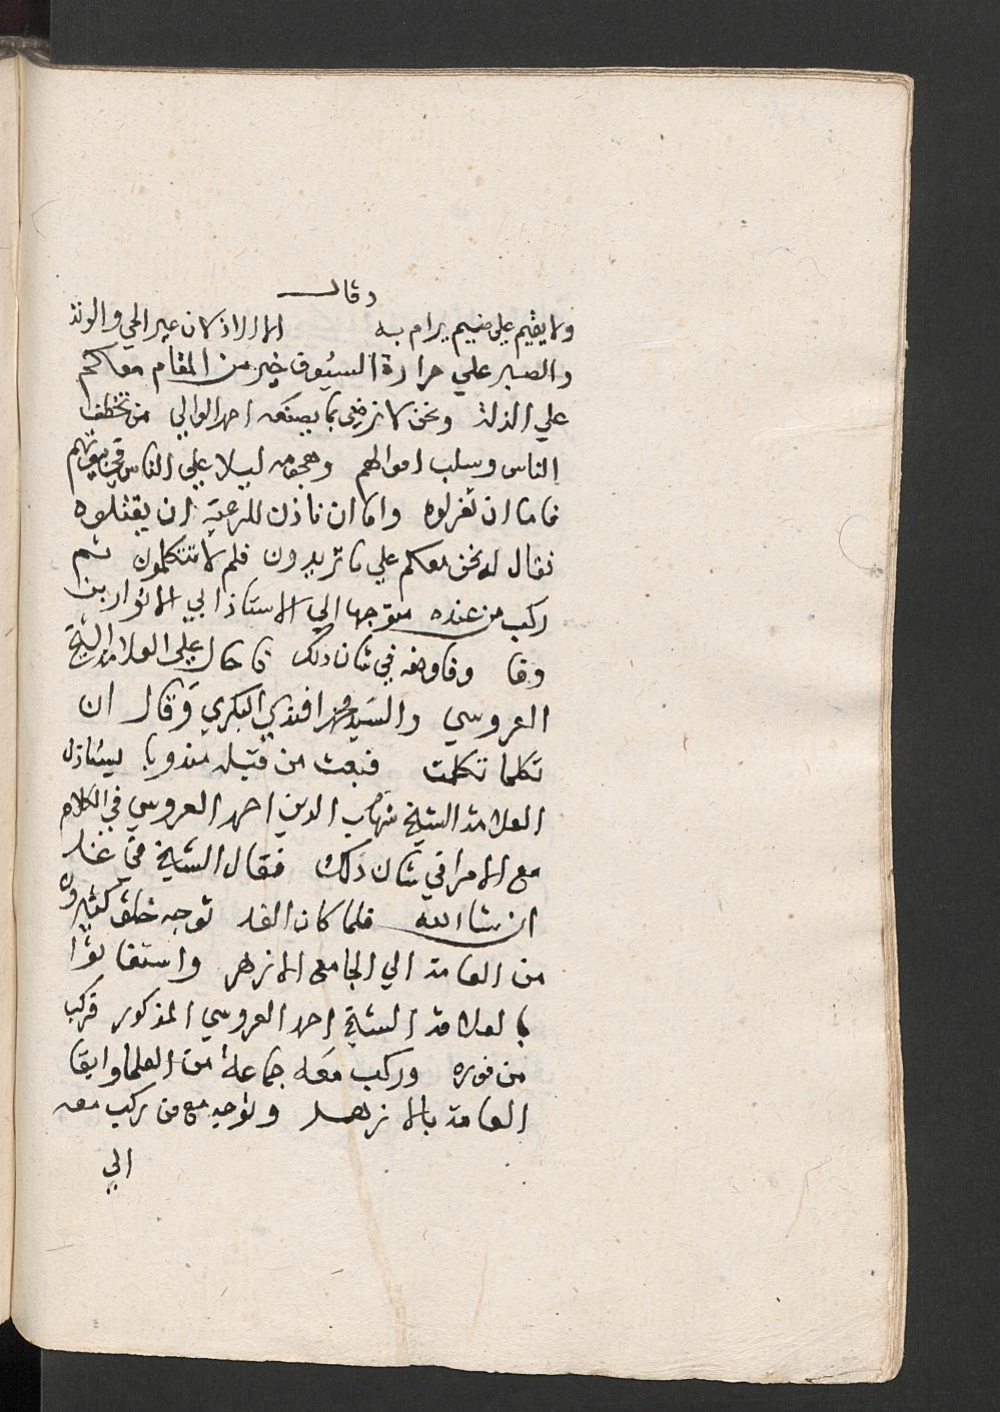 وقال
ولا يقيم علي ضيم يرام به الا الاذلان عير الحي والوتد
والصبر علي حرارة السيوف خير من المقام معكم
علي الذلة ونحن لا نرضي بما يصنعه احمد الوالي من تخطف
الناس وسلب اموالهم وهجمه ليلا علي الناس في بيوتهم
فاما ان تعزلوه واما ان ناذن للرعية ان يقتلوه
فقال له نحن معكم علي ما تريدون فلم لا تتكلمون ثم
ركب من عنده متوجها الي الاستاذ ابي الانوار بن
وفا وفاوضه في شان ذلك فاحال علي العلامة الشيخ
العروسي والسيد محمد افندي البكري وقال ان
تكلما تكلمت فبعث من قبله مندوبا يستاذن
العلامة الشيخ شهاب الدين احمد العروسي في الكلام
مع الامرا في شان ذلك فقال الشيخ في غد
ان شا الله فلما كان الغد توجه خلق كثيرون
من العامة الي الجامع الازهر واستغاثوا
بالعلامة الشيخ احمد العروسي المذكور فركب
من فوره وركب معه جماعة من العلما وابقا
العامة بالازهر وتوجه مع من ركب معه
الي